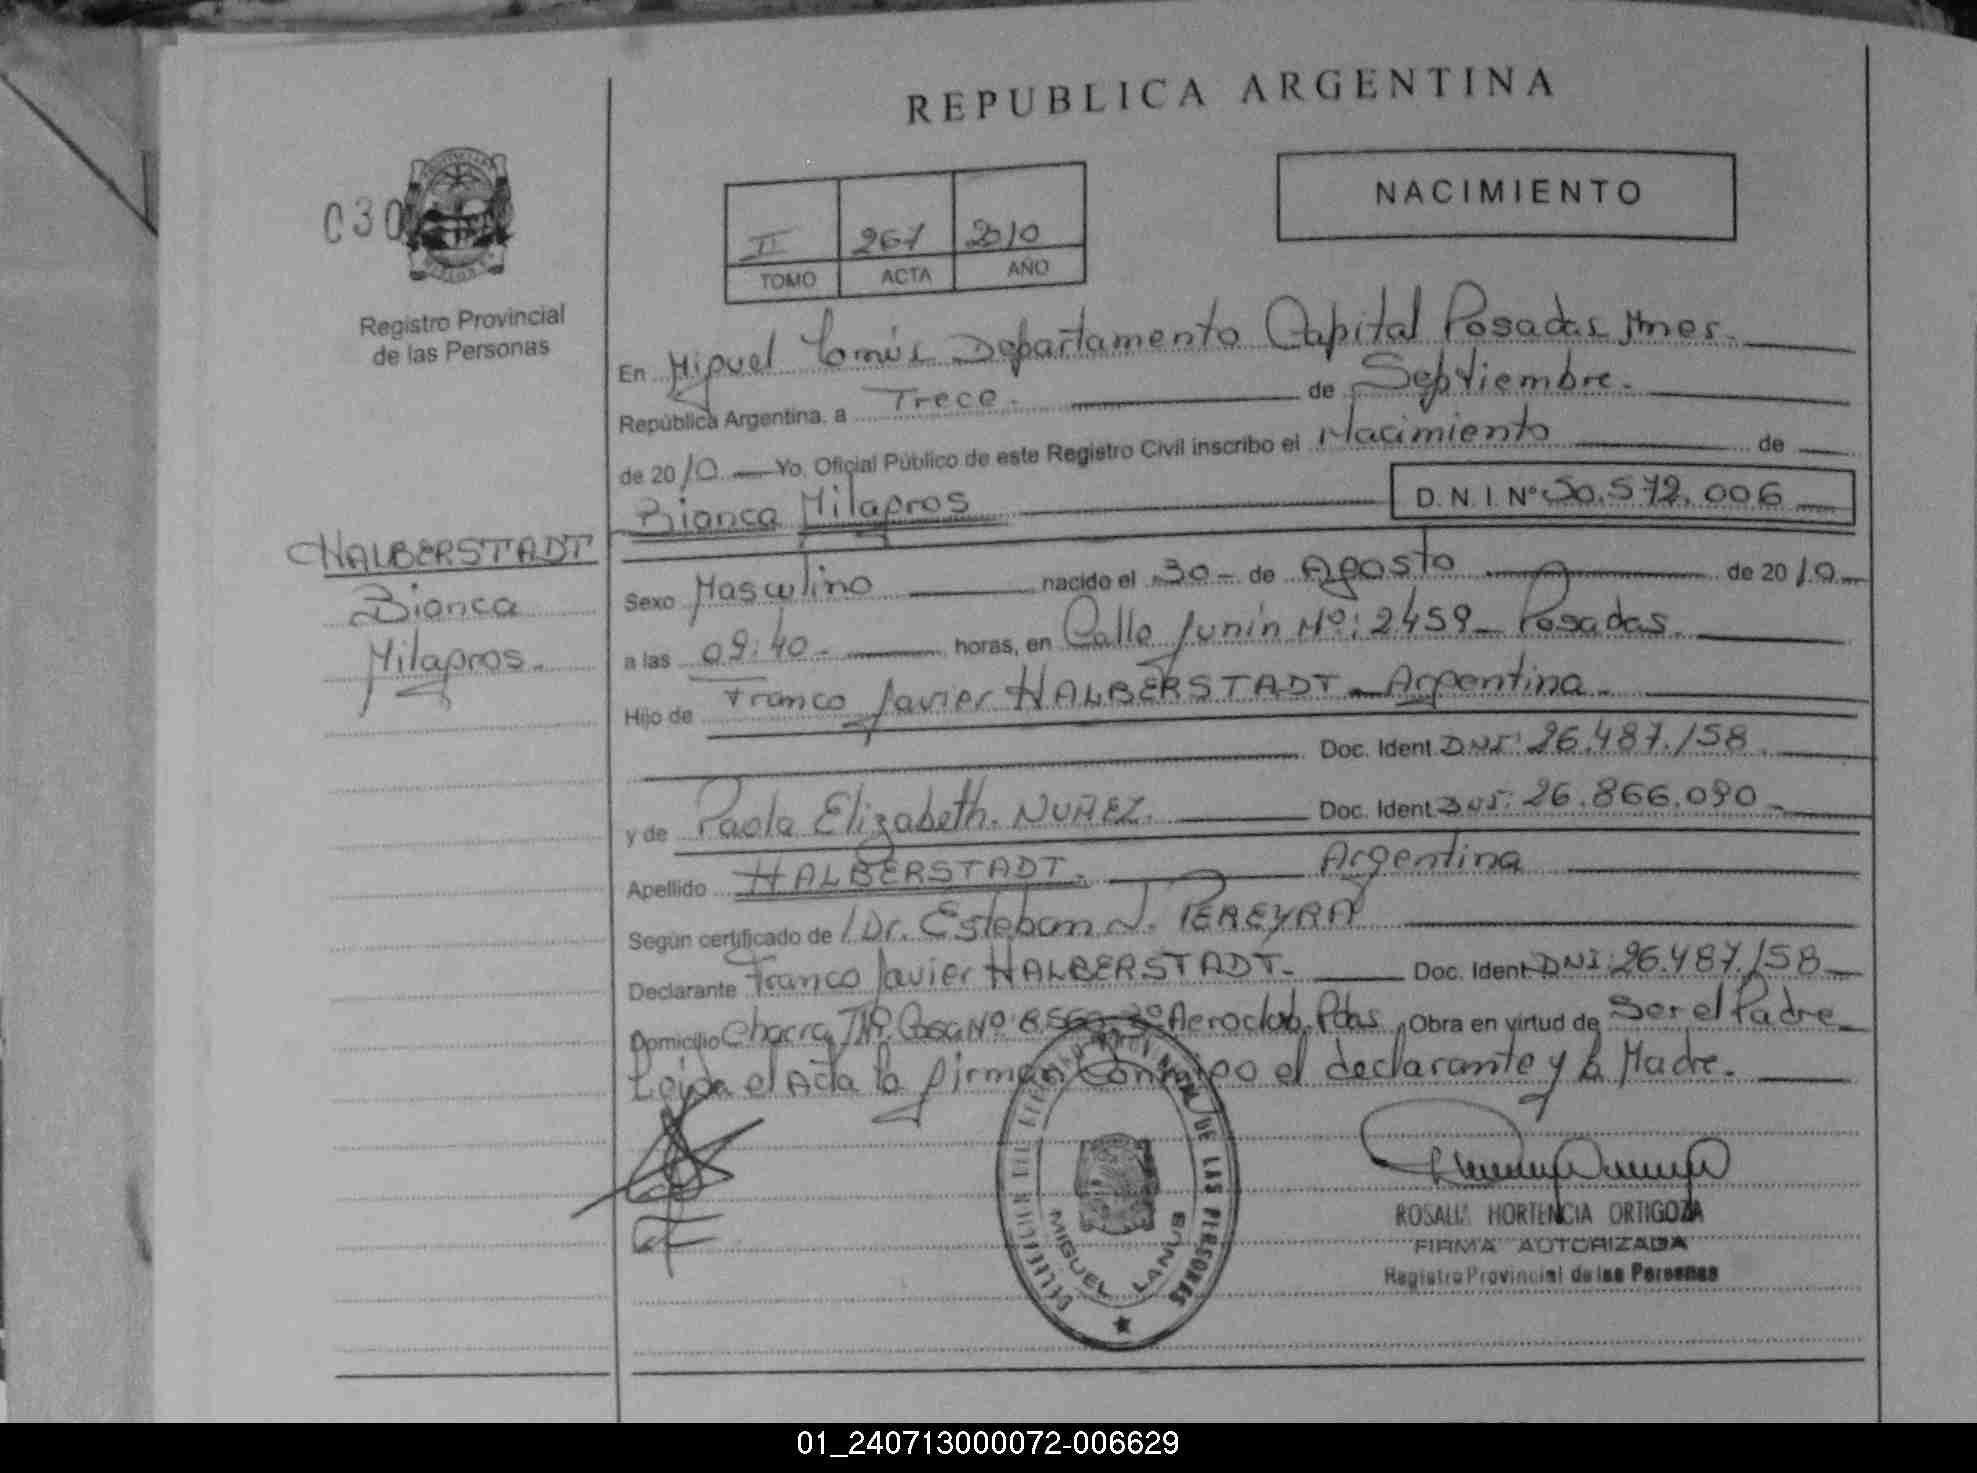 REPUBLICA ARGENTINA
NACIMIENTO
030
II 267 2010
TOMO ACTA AÑO
Registro Provincial
de las Personas
En Miguel Departamento Capital Posadas Mnes.
República Argentina, a Trece. de Septiembre.
de 2010 Yo, Oficial Público de este Registro Civil inscribo el Nacimiento de
Bianca Milagros D.N.I. Nº 50.572.006
HALBERSTADT
Bianca
Milagros.
Sexo Masculino nacido el 30 de Agosto de 2010
a las 09:40 horas, en Calle Junin Nº: 2459 Posadas.
Hijo de Franco Javier HALBERSTADT Argentina.
Doc. Ident. DNI: 26.487.158
y de Paola Elizabeth. NUÑEZ. Doc. Ident. DNI: 26.866.090
Apellido HALBERSTADT. Argentina
Según certificado de Dr. Esteban J. PEREYRA
Declarante Franco Javier HALBERSTADT. Doc. Ident. DNI: 26.487.158
Domicilio Chacra Casa Nº Aeroclub. Pdas Obra en virtud de Ser el Padre
Leida el Acta la firman Conmigo el declarante y la Madre.
DE LAS PERSONAS
MIGUEL LANUS
ROSALIA HORTENCIA ORTIGOZA
FIRMA AUTORIZADA
Registro Provincial de las Personas
01_240713000072-006629